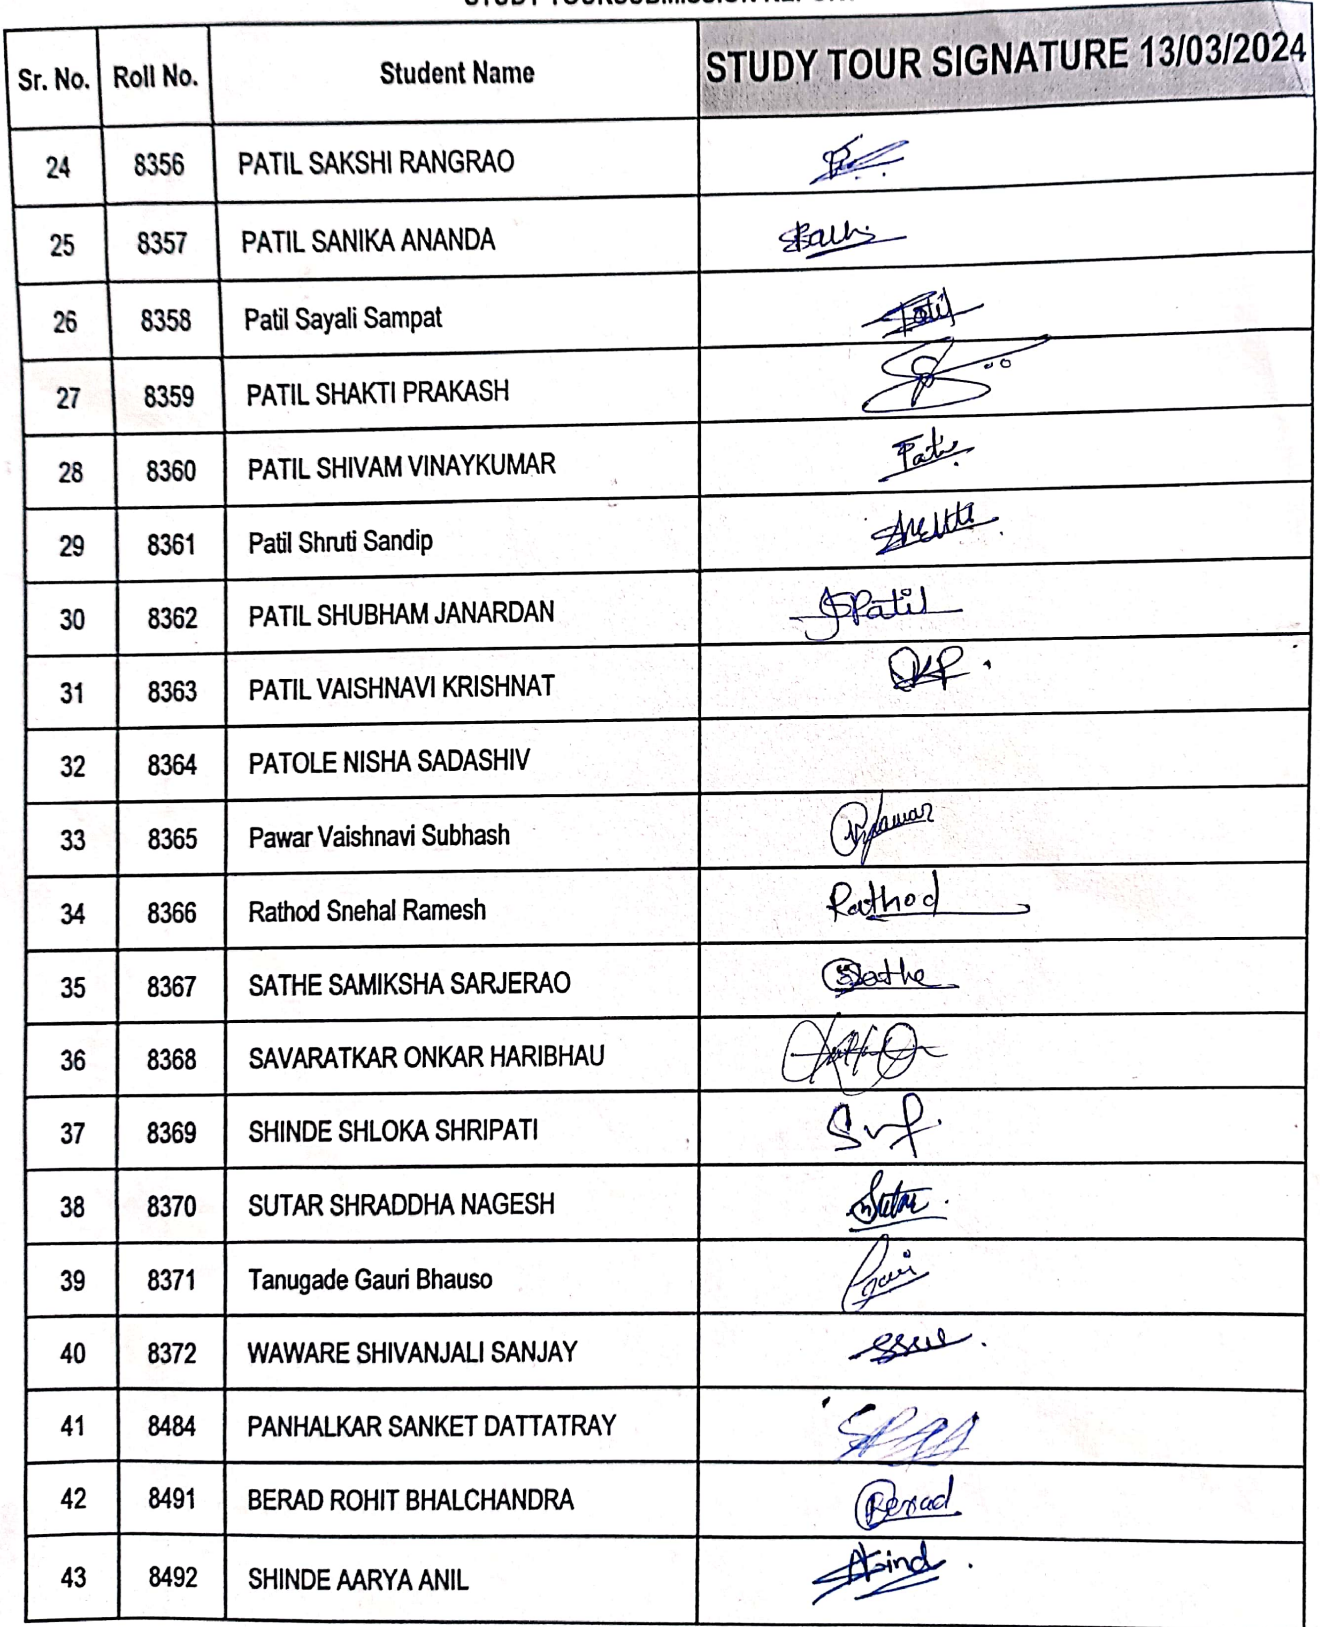 STUDY TOURSUBMISSION REPORT
Sr. No. Roll No. Student Name STUDY TOUR SIGNATURE 13/03/2024
24 8356 PATIL SAKSHI RANGRAO
25 8357 PATIL SANIKA ANANDA
26 8358 Patil Sayali Sampat Patil
27 8359 PATIL SHAKTI PRAKASH
28 8360 PATIL SHIVAM VINAYKUMAR
29 8361 Patil Shruti Sandip
30 8362 PATIL SHUBHAM JANARDAN SPatil
31 8363 PATIL VAISHNAVI KRISHNAT
32 8364 PATOLE NISHA SADASHIV
33 8365 Pawar Vaishnavi Subhash
34 8366 Rathod Snehal Ramesh Rathod
35 8367 SATHE SAMIKSHA SARJERAO Sathe
36 8368 SAVARATKAR ONKAR HARIBHAU
37 8369 SHINDE SHLOKA SHRIPATI
38 8370 SUTAR SHRADDHA NAGESH
39 8371 Tanugade Gauri Bhauso
40 8372 WAWARE SHIVANJALI SANJAY
41 8484 PANHALKAR SANKET DATTATRAY
42 8491 BERAD ROHIT BHALCHANDRA Berad
43 8492 SHINDE AARYA ANIL